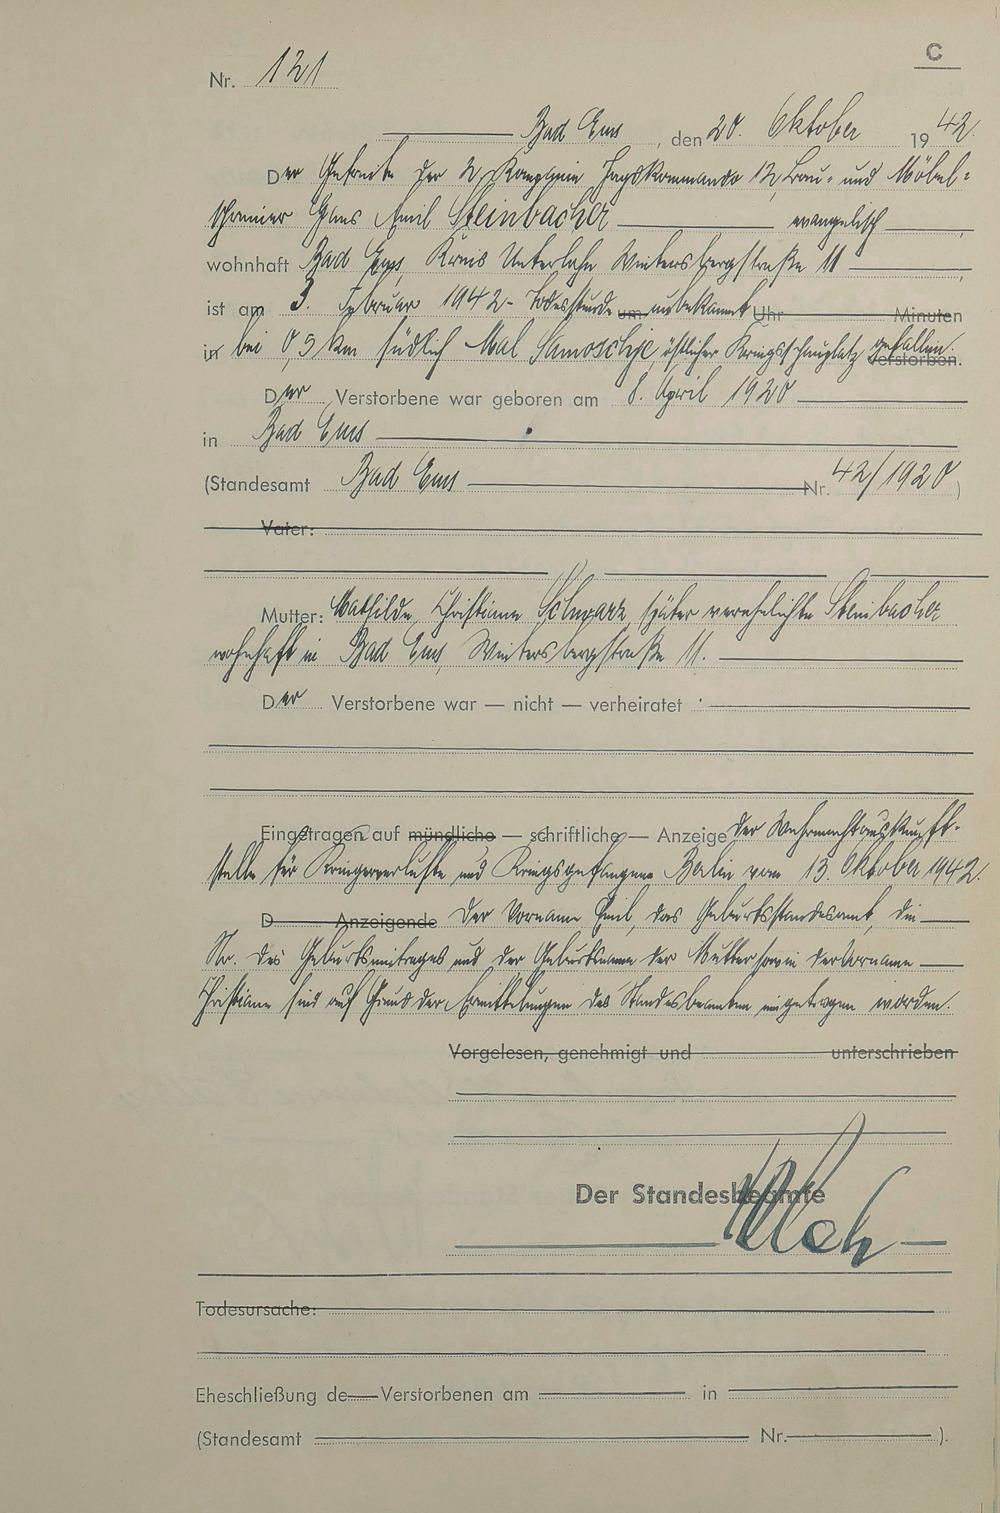 C
Nr. 121
Bad Ems, den 20. Oktober 1942.
Der Gefreite der 2. Kompanie Jagdkommando 12, Bau- und Möbel-
schreiner Hans Emil Steinbacher evangelisch,
wohnhaft Bad Ems, Kreis Unterlahn Wintersbergstraße 11,
ist am 3. Februar 1942 - Todesstunde um unbekannt Uhr Minuten
in bei 0,5 km südlich Mal. Samoschje, östlicher Kriegsschauplatz gefallen. verstorben.
Der Verstorbene war geboren am 8. April 1920
in Bad Ems
(Standesamt Bad Ems Nr. 42/1920)
Vater:
Mutter: Mathilde, Christiane Schwarz, später verehelichte Steinbacher
wohnhaft in Bad Ems, Wintersbergstraße 11.
Der Verstorbene war — nicht — verheiratet
Eingetragen auf mündliche — schriftliche — Anzeige der Wehrmachtauskunft-
stelle für Kriegerverluste und Kriegsgefangene Berlin vom 13. Oktober 1942.
D Anzeigende Der Vorname Emil, das Geburtsstandesamt, die
Nr. des Geburtseintrages und der Geburtsname der Mutter sowie der Vorname
Christiane sind auf Grund der Ermittelungen des Standesbeamten eingetragen worden.
Vorgelesen, genehmigt und unterschrieben
Der Standesbeamte
Todesursache:
Eheschließung de Verstorbenen am in
(Standesamt Nr. ).